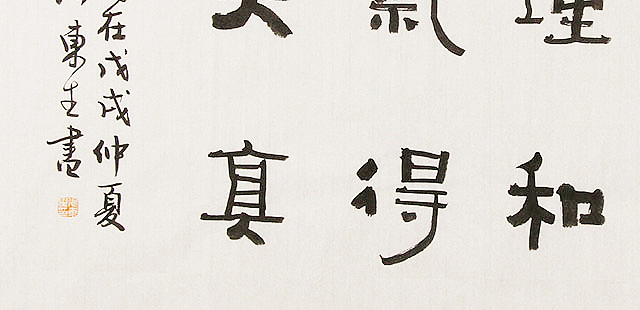 理和
氣得
真
在戊戌仲夏
東生書